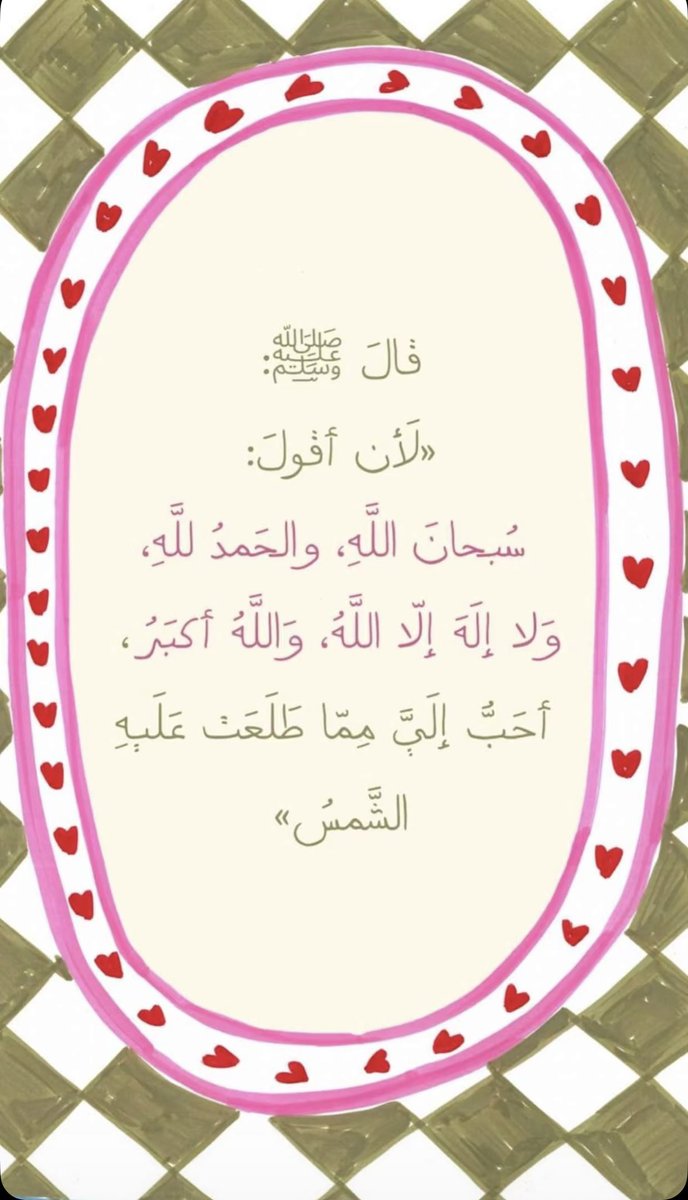 قالَ ﷺ:
«لَأن أقولَ:
سُبحانَ اللَّهِ، والحَمدُ للَّهِ،
وَلا إلَهَ إلّا اللَّهُ، وَاللَّهُ أكبَرُ،
أحَبُّ إلَيَّ مِمّا طَلَعَتْ عَلَيهِ
الشَّمسُ»